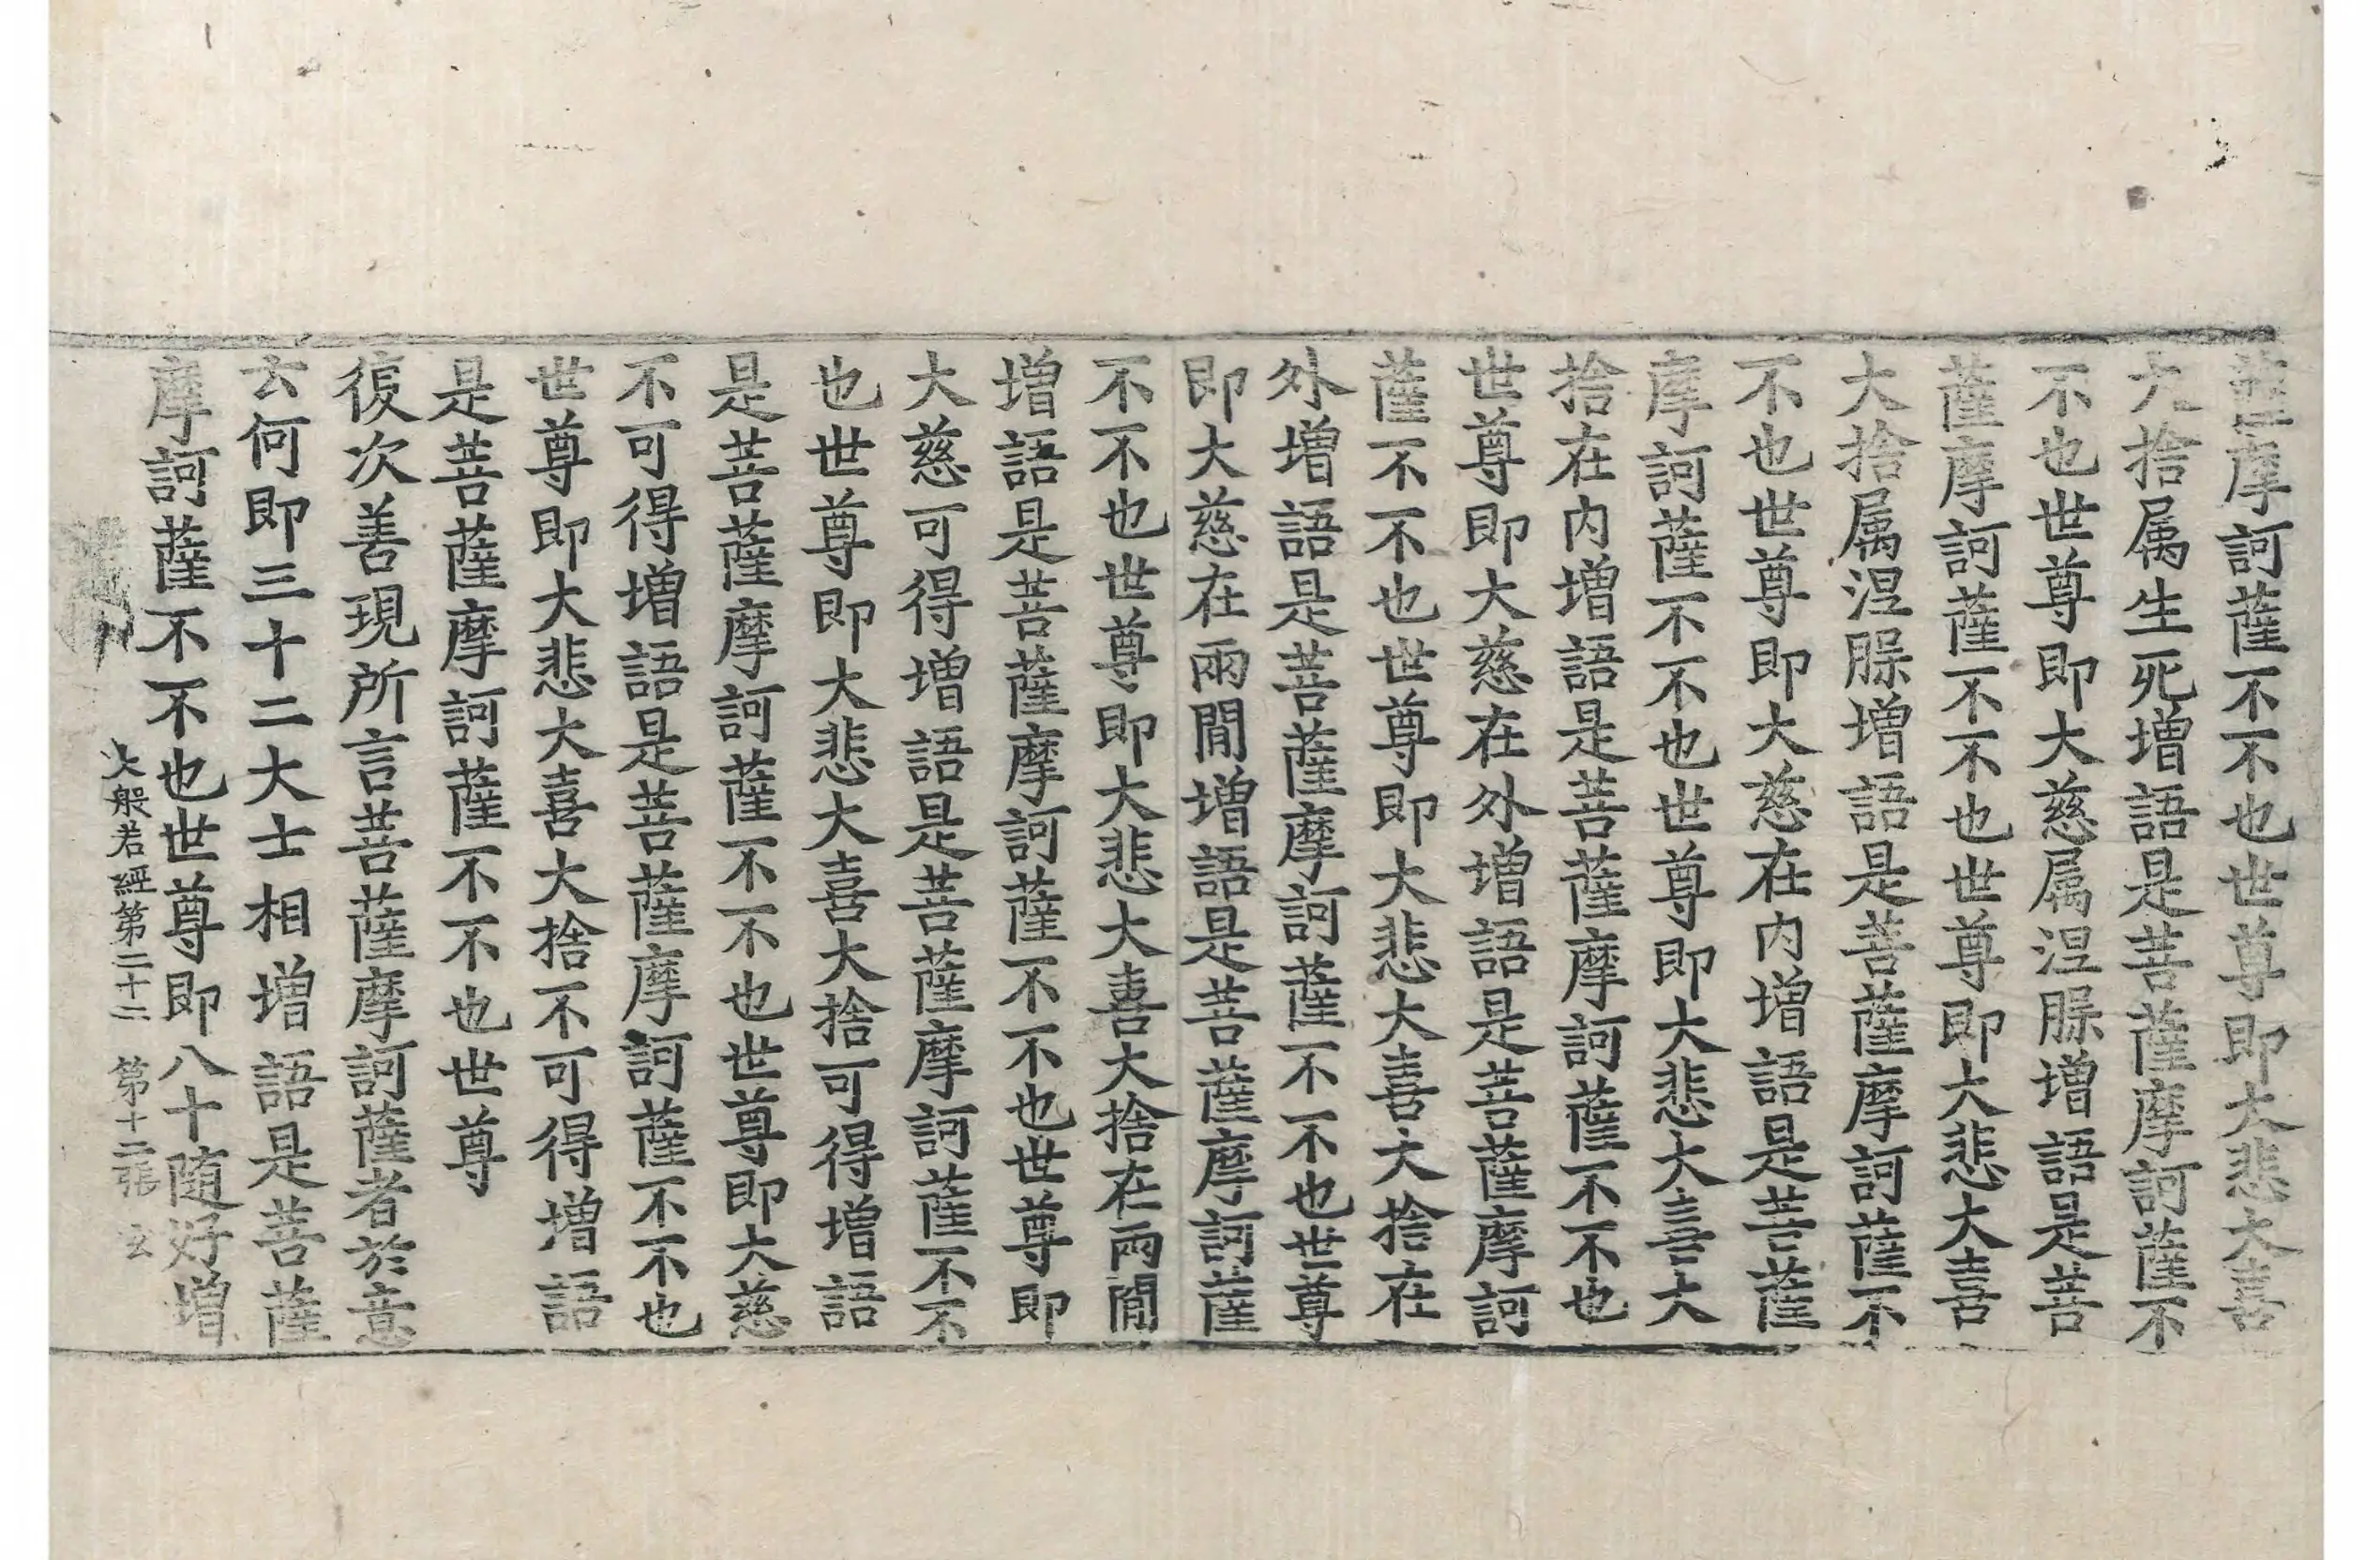 薩摩訶薩不不也世尊即大悲大喜
大捨属生死增語是菩薩摩訶薩不
不也世尊即大慈属涅脲增語是菩
薩摩訶薩不不也世尊即大悲大喜
大捨属涅脲增語是菩薩摩訶薩不
不也世尊即大慈在内增語是菩薩
摩訶薩不不也世尊即大悲大喜大
捨在内增語是菩薩摩訶薩不不也
世尊即大慈在外增語是菩薩摩訶
薩不不也世尊即大悲大喜大捨在
外增語是菩薩摩訶薩不不也世尊
即大慈在兩閒增語是菩薩摩訶薩
不不也世尊即大悲大喜大捨在兩閒
增語是菩薩摩訶薩不不也世尊即
大慈可得增語是菩薩摩訶薩不不
也世尊即大悲大喜大捨可得增語
是菩薩摩訶薩不不也世尊即大慈
不可得增語是菩薩摩訶薩不不也
世尊即大悲大喜大捨不可得增語
是菩薩摩訶薩不不也世尊
復次善現所言菩薩摩訶薩者於意
云何即三十二大士相增語是菩薩
摩訶薩不不也世尊即八十随好增
大般若經第二十二 第十二張 玄